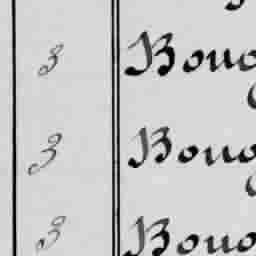 3 Boug
3 Boug
3 Boug